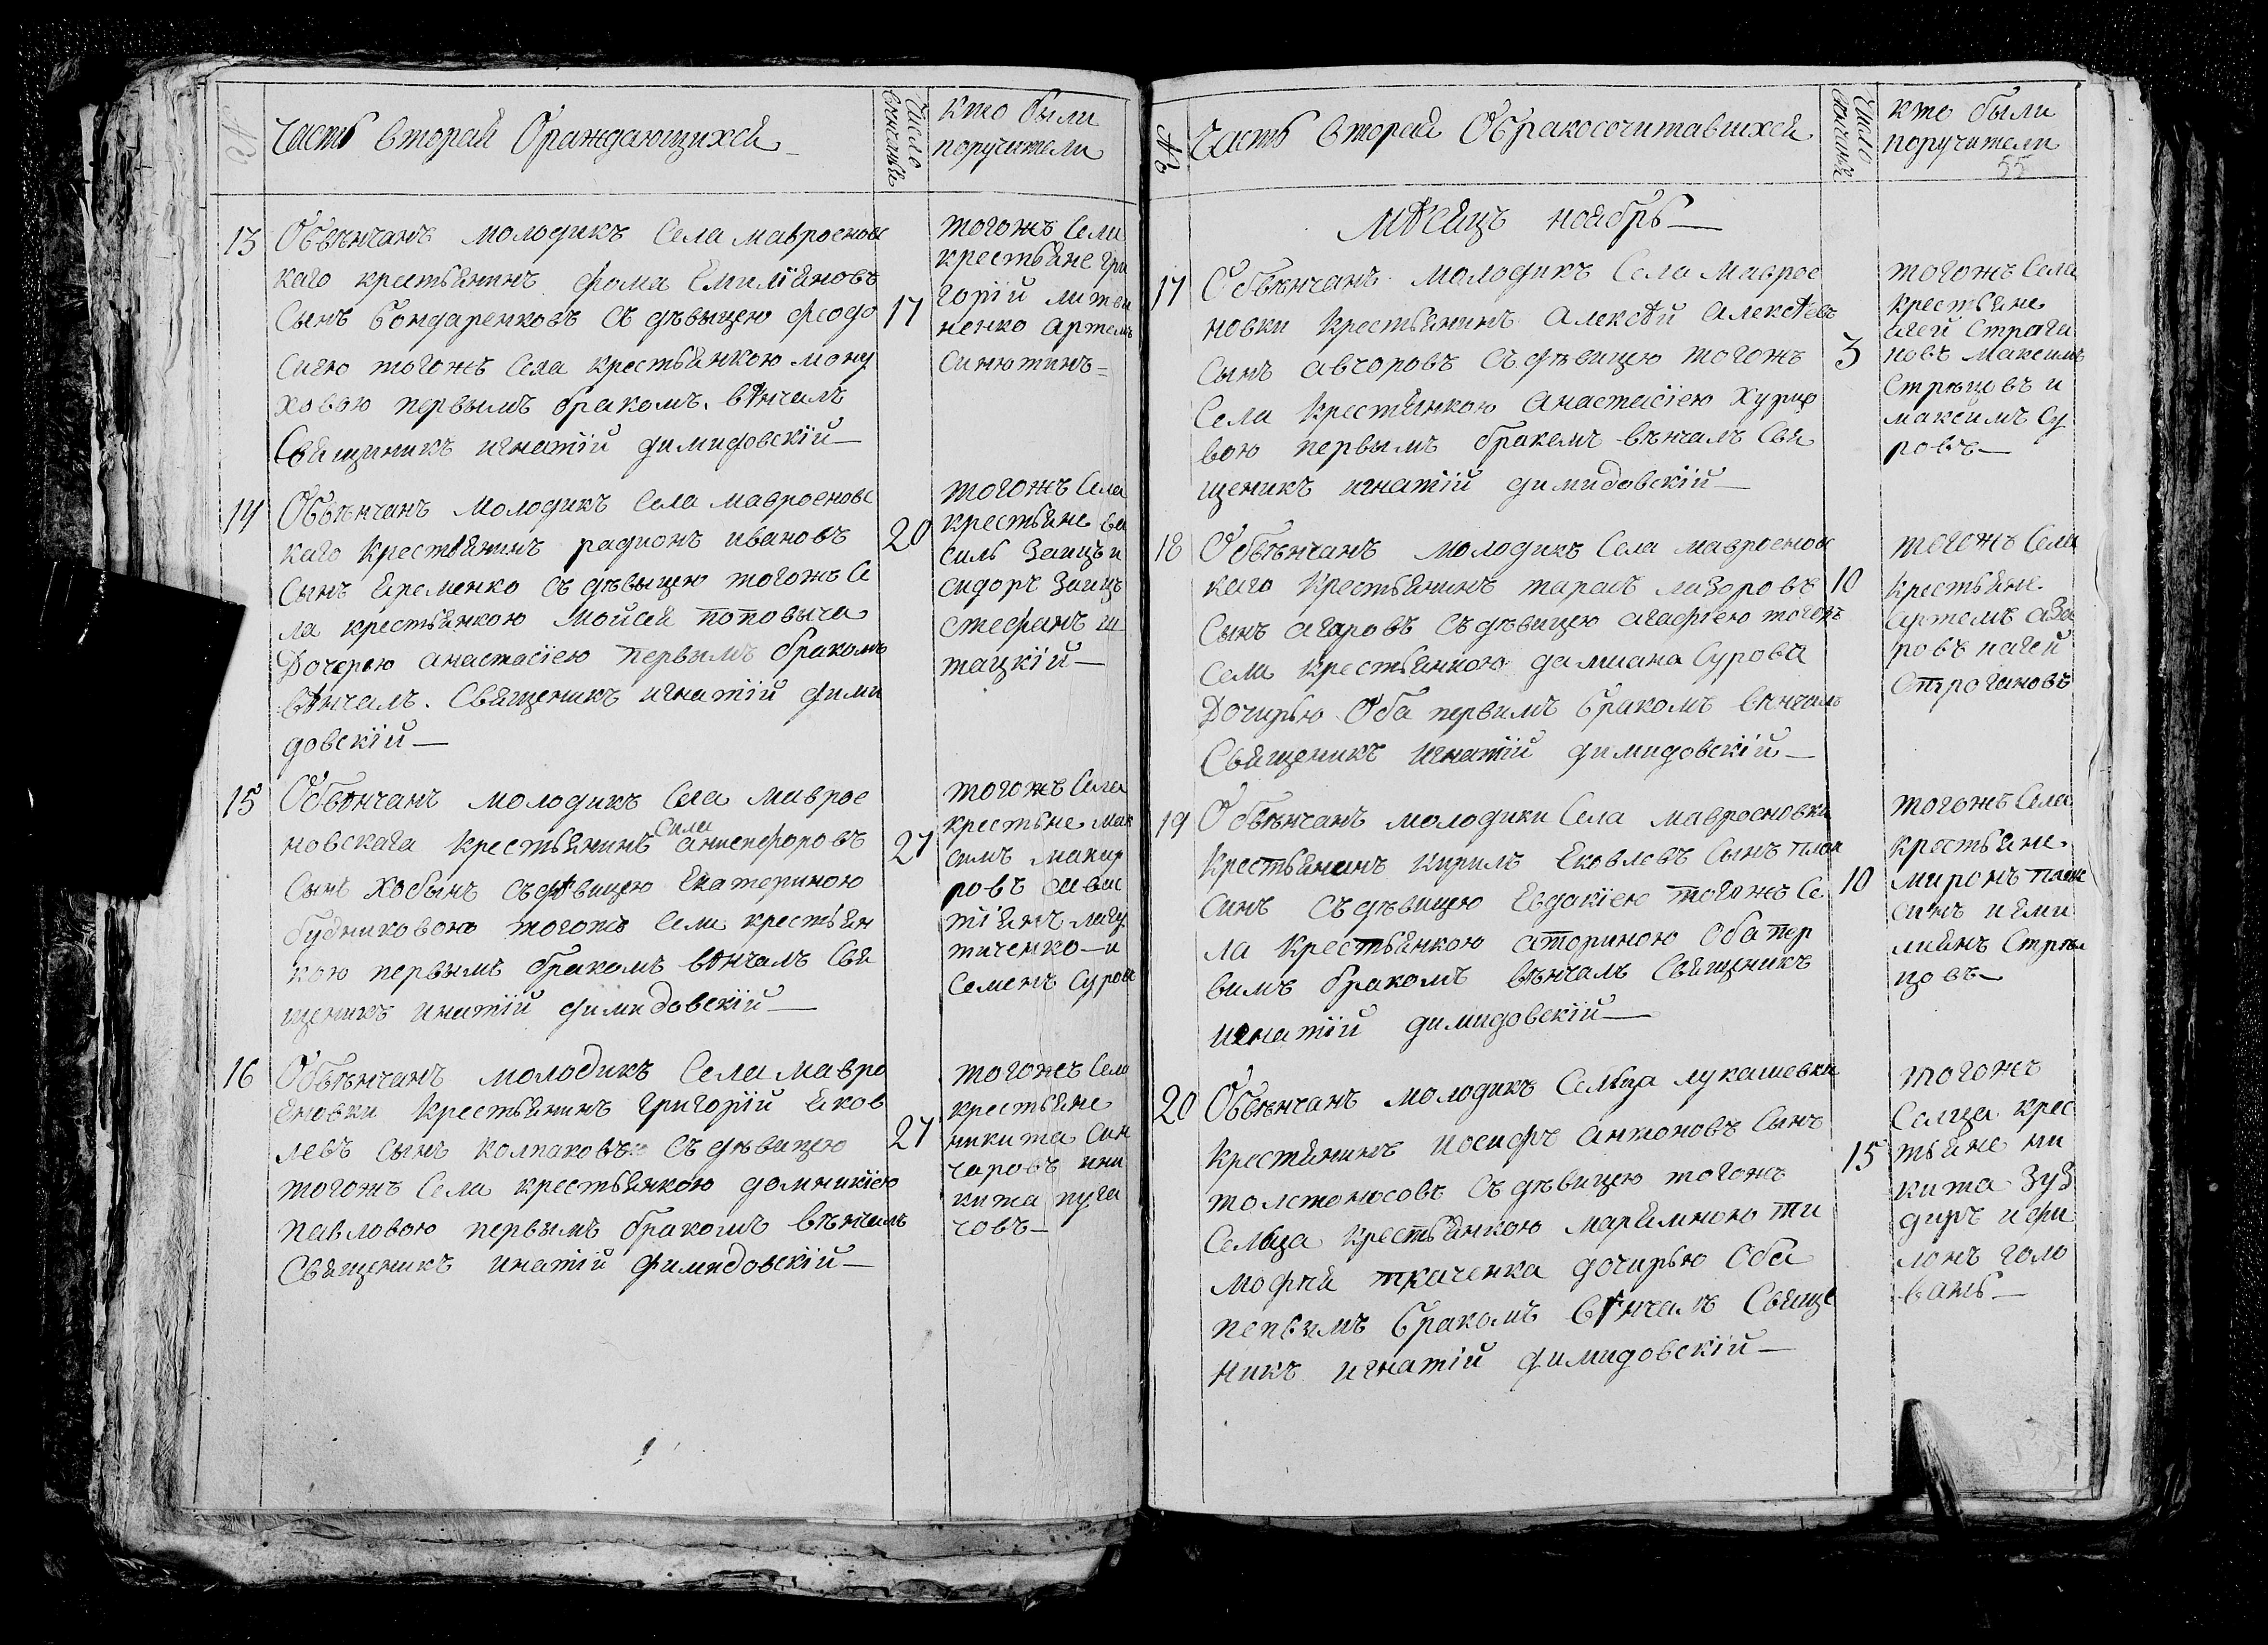 №
Часть вторая Ораждающихся
Число венчанья
кто были
поручители
13
Обвѣнчанъ молодикъ Села мавроенов
каго крестьянинъ фома Емилїановъ
Сынъ бондаренковъ Съ дѣвыцею феодо
Сиею тогожъ Села крестьянкою мону
ховою первымъ бракомъ. вѣнчалъ
Священикъ игнатїй димидовскїй
17
тогожъ Села
крестьяне гри
горїй литви
ненко артемъ
Синютинъ
14
Обвѣнчанъ молодикъ Села мавроеновс
каго крестьянинъ радионъ ивановъ
Сынъ Еременко съ дѣвыцею тогожъ Се
ла крестьянкою Моисея поповыча
Дочерею анастасїею первымъ бракомъ
вѣнчалъ. Священикъ игнатїй дими
довскїй
20
тогожъ Села
крестьяне ва
силь Заицъ и
сидоръ Заицъ
стефанъ
тацкїй
15
Обвѣнчанъ молодикъ Села мавров
новскага крестьянинъ Сила аникифоровъ
Сынъ Хобынъ Съ дѣвицею Екатериною
будниковою тогожъ Села крестьян
кою первымъ бракомъ вѣнчалъ Свя
щеникъ инатїй димидовскїй
27
тогожъ Села
крестьяне мак
симъ макар
ровъ севас
тїянъ лагу
тиченко и
Семенъ Суровъ
16
Обвѣнчанъ молодикъ Села мавро
еновки крестьянинъ григорїй яков
левъ сынъ колпаковъ съ дѣвицею
тогожъ Села крестьянкою домникїею
павловою первымъ бракомъ вѣнчалъ
Священикъ инатїй димидовскїй
27
тогожъ Села
крестьяне
никита Син
чаровъ ини
кита пуга
човъ
№
Часть вторая Обракосочитавшихся
Число венчанья
кто были
поручители
55
мѣсяцъ ноябрь
17
Обвѣнчанъ молодикъ Села мавров
новки крестьянинъ алексѣй алексѣевъ
Сынъ авчоровъ съ дѣвицею тогожъ
Села крестьянкою анастасїею Хурцо
вою первымъ бракомъ вѣнчалъ Свя
щеникъ игнатїй димидовскїй
3
тогожъ Села
крестьяне
агей Страга
новъ максимъ
Стрѣцовъ и
максимъ Су
ровъ
18
Обвѣнчанъ молодикъ Села мавроенов
каго крестьянинъ тарасъ лазоровъ
Сынъ агаровъ съ дѣвицею агафїею тогожъ
Села крестьянкою дамиана Сурова
Дочирью Оба первимъ бракомъ вѣнчалъ
Священикъ игнатїй димидовскїй
10
тогожъ Села
крестьяне
артемъ аза
ровъ иагей
Строгановъ
19
Обвѣнчанъ молодики Села мавроеновки
крестьянинъ кирилъ Яковлевъ Сынъ плак
синъ съ дѣвицею Евдокїею тогожъ Се
ла крестьянкою аториною Оба пер
вимъ бракомъ вѣнчалъ Священикъ
игнатїй димидовскїй
10
тогожъ Села
крестьяне
миронъ плак
синъ иеми
лиянъ Стрѣл
цовъ
20
Обвѣнчанъ молодикъ Сельца лукашевки
крестянинъ иосифъ антоновъ Сынъ
толстоносовъ съ дѣвицею тогожъ
Сельца крестьянкою марьямною ти
мофѣя ткаченка дочирью Оба
первимъ бракомъ вѣнчалъ Свяще
никъ игнатїй димидовскїй
15
тогожъ
Селца крес
тьяне ни
кита Зуз
диръ ифи
лонъ голо
вань